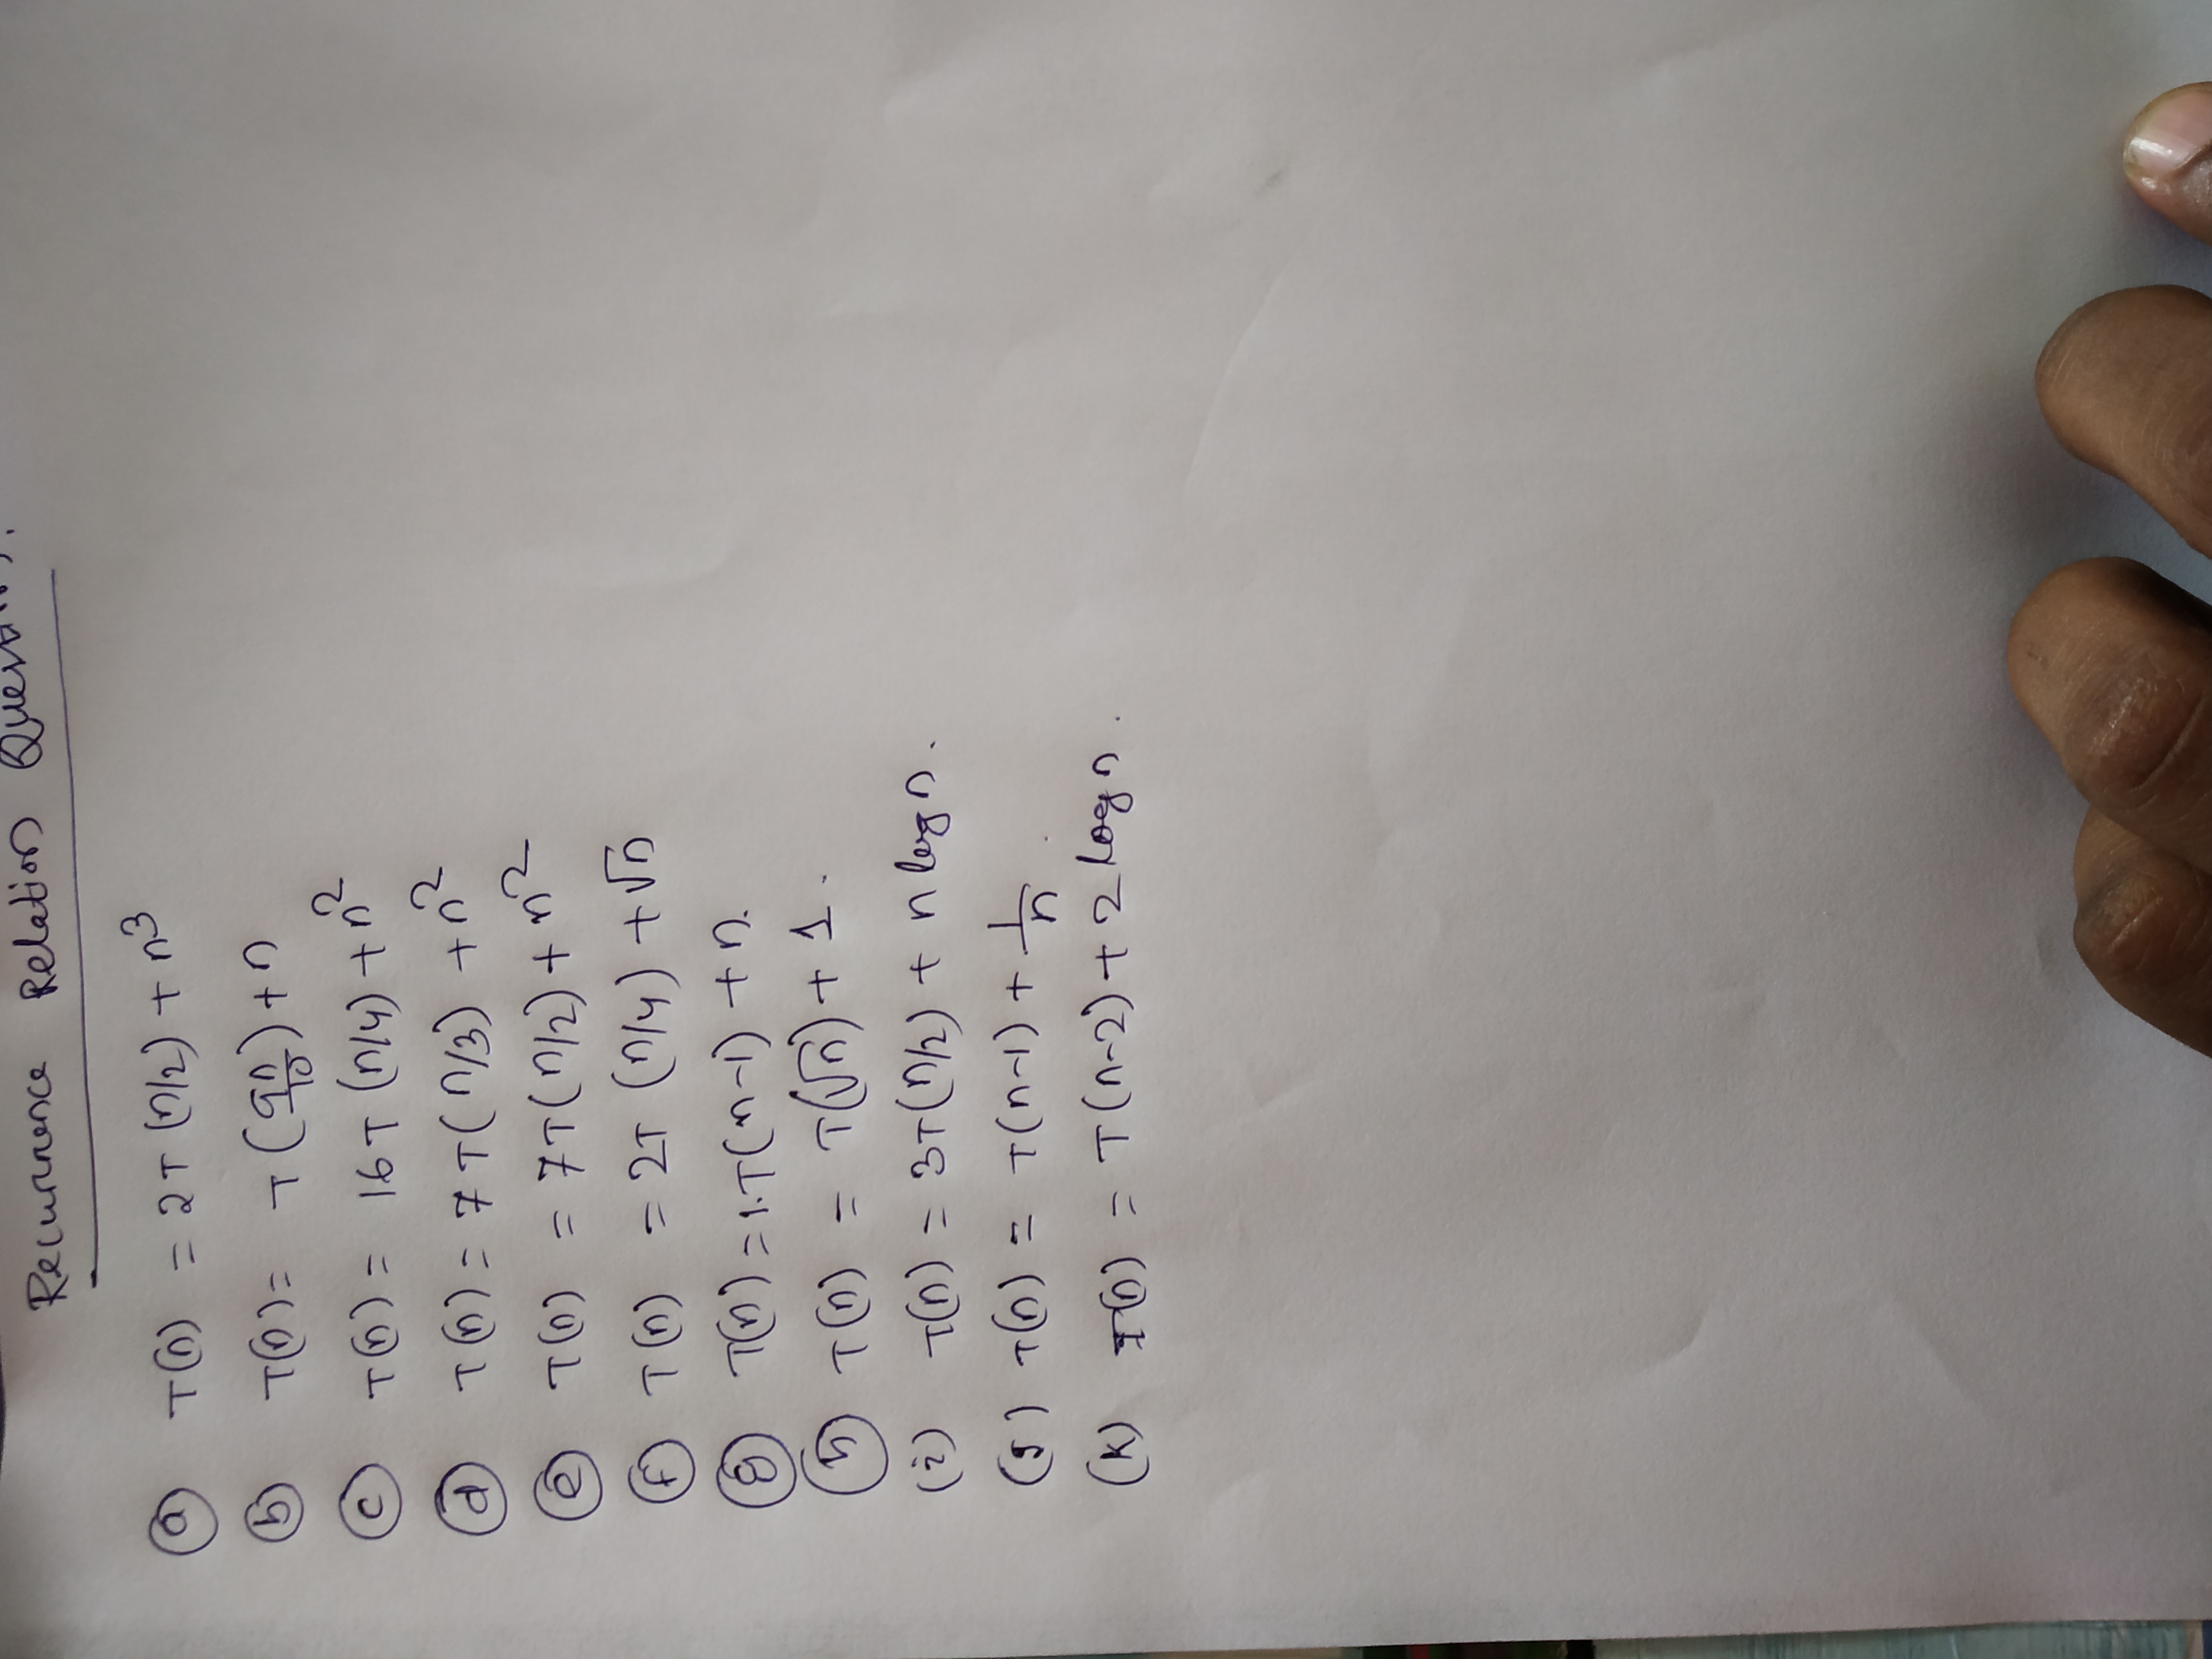 Recurrence Relation
(a) T(n) = 2T(n/2) + n³
(b) T(n) = T(9n/10) + n
(c) T(n) = 16T(n/4) + n²
(d) T(n) = 7T(n/3) + n²
(e) T(n) = 7T(n/2) + n²
(f) T(n) = 2T(n/4) + √n
(g) T(n) = 1.T(n-1) + n.
(h) T(n) = T(√n) + 1.
(i) T(n) = 3T(n/2) + n log n.
(j) T(n) = T(n-1) + 1/n.
(k) T(n) = T(n-2) + 2 log n.